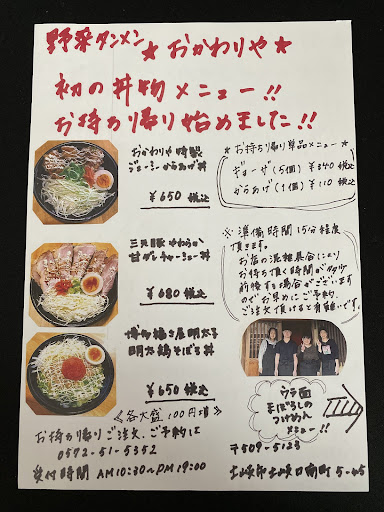 野菜タンメン
★おかわりや★
初の丼物メニュー!!
お持ち帰り始めました!!
おかわりや特製
ジューシーからあげ丼
¥650税込
★お持ち帰り単品メニュー★
ギョーザ(5個) ¥340税込
からあげ(1個) ¥110税込
三元豚やわらか
甘ダレチャーシュー丼
¥680税込
※準備時間15分程度
頂きます。
お店の混雑具合により
お待ち頂く時間が多少
前後する場合がございます
のでお早めにご予約、
ご注文頂けると有難いです。
博多福さ屋明太子
明太鶏そぼろ丼
¥650税込
《各大盛100円増》
ウラ面
まぼろしの
つけめん
メニュー!!
お持ち帰りご注文、ご予約は
0572-51-5352
受付時間 AM10:30~PM19:00
〒509-5123
土岐市土岐口南町5-45